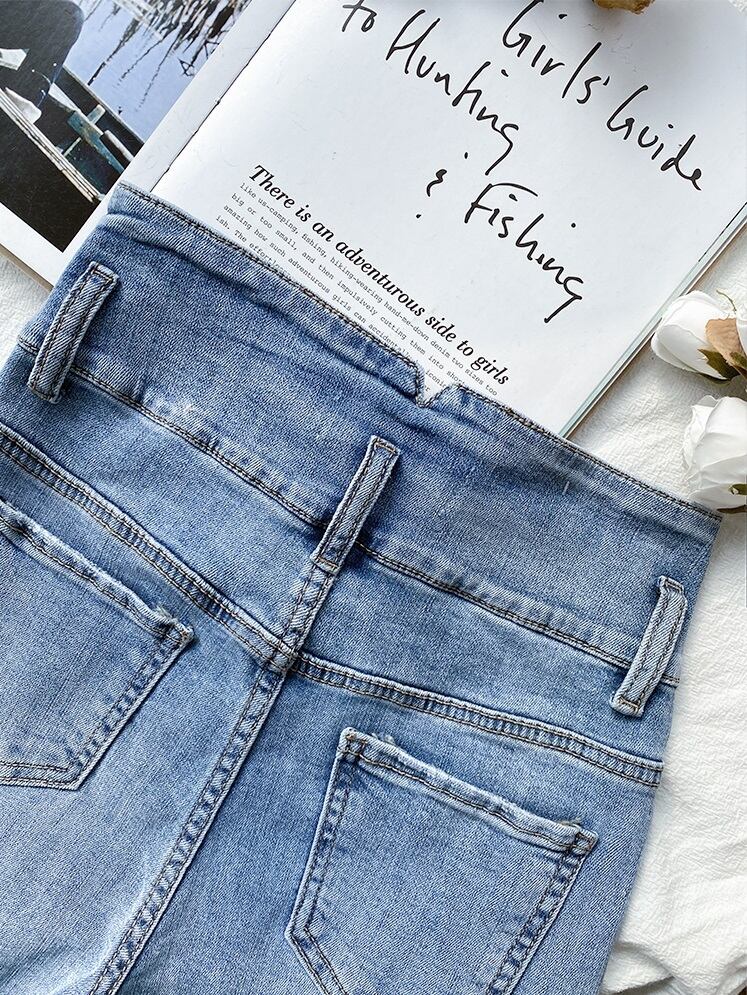 Girls' Guide
to Hunting
& Fishing
There is an adventurous side to girls
like us-camping, fishing, hiking-wearing hand-me-down denim two sizes too
big or too small, and then impulsively cutting them into shor
amazing how such adventurous girls can accidental
ish. The effortles iconic